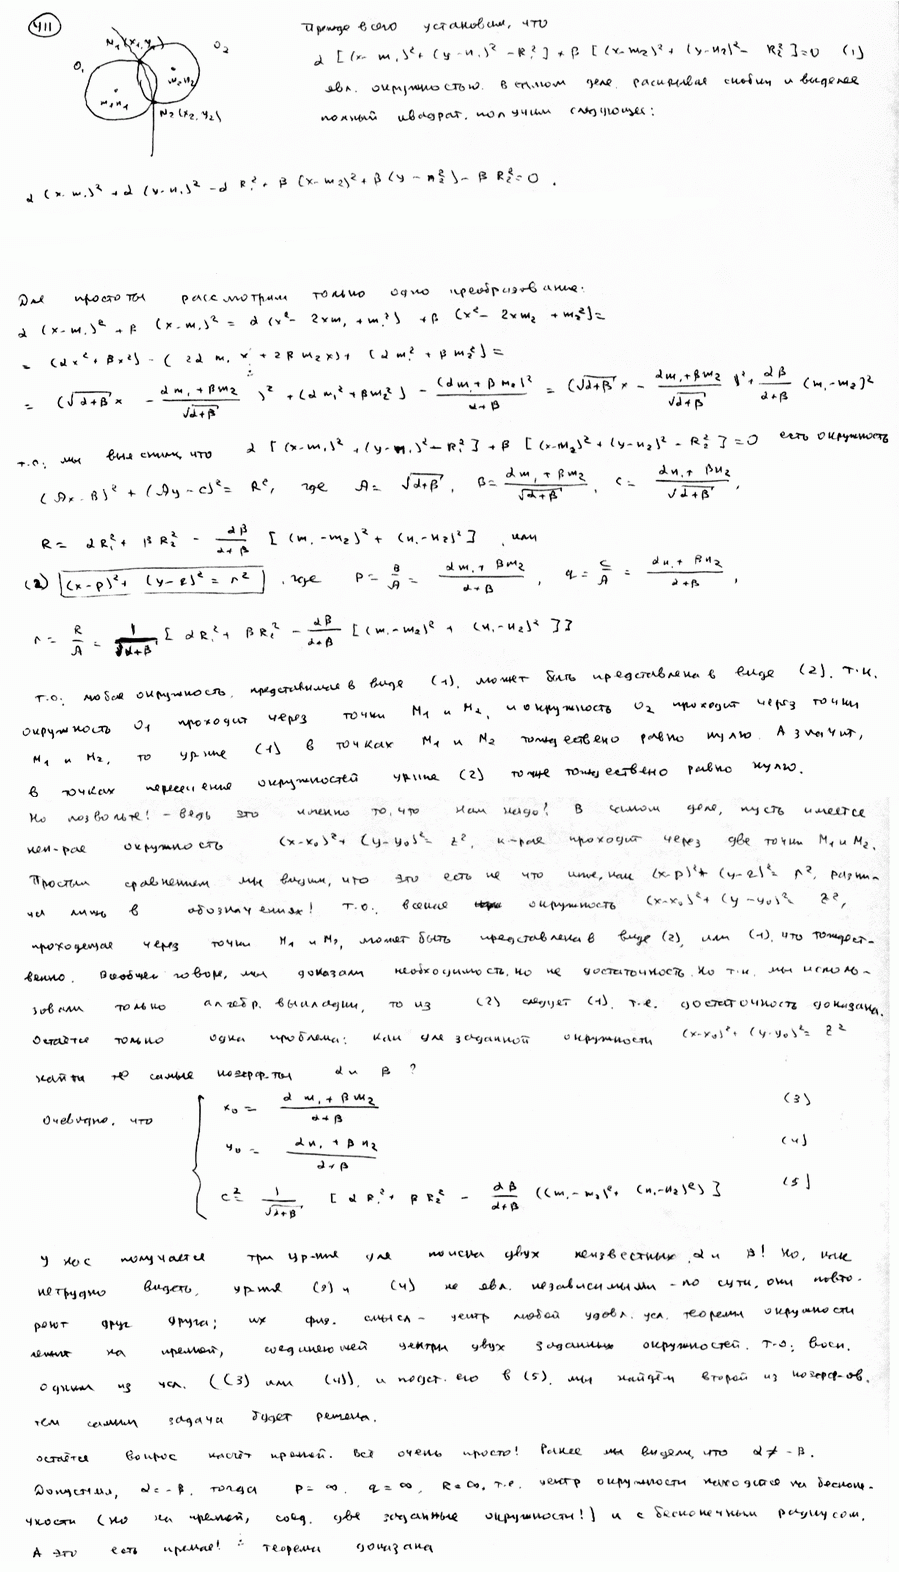 411
Прежде всего установим, что
N1 (x1, y1)
O2
O1
m2, n2
m1, n1
N2 (x2, y2)
α [(x-m₁)²+(y-n₁)²-R₁²]+β [(x-m₂)²+(y-n₂)²- R₂²]=0 (1)
явл. окружностью. В самом деле, раскрывая скобки и выделяя
полный квадрат, получим следующее:
α (x-m₁)²+α (y-n₁)²-α R₁²+ β (x-m₂)²+β (y-n₂²)-β R₂²=0.
Для простоты рассмотрим только одно преобразование:
α (x-m₁)²+β (x-m₁)²= α (x²- 2xm₁+m₁²) +β (x²- 2xm₂+m₂²)=
= (αx²+βx²)-(2α m₁ x+2β m₂x)+ (α m₁²+β m₂²)=
= (√α+β x - αm₁+βm₂/√α+β )²+(αm₁²+βm₂²) - (αm₁+βm₂)²/α+β = (√α+β x - αm₁+βm₂/√α+β)²+ αβ/α+β (m₁-m₂)²
т.о. мы выяснили, что α [(x-m₁)²+(y-n₁)²-R₁²]+β [(x-m₂)²+(y-n₂)²-R₂²]=0 есть окружность
(Ax-B)²+(Ay-C)²=R², где A= √α+β, B= αm₁+βm₂/√α+β, C= αn₁+βn₂/√α+β,
R= αR₁²+ βR₂² - αβ/α+β [(m₁-m₂)²+(n₁-n₂)²], или
(2) (x-p)²+ (y-q)²= r², где p= B/A= αm₁+βm₂/α+β, q= C/A= αn₁+βn₂/α+β,
r= R/A= 1/√α+β [αR₁²+ βR₂²- αβ/α+β [(m₁-m₂)²+ (n₁-n₂)²]]
т.о. любая окружность, представимая в виде (1), может быть представлена в виде (2). Т.к.
окружность O1 проходит через точки M1 и M2, и окружность O2 проходит через точки
M1 и M2, то ур-ние (1) в точках M1 и M2 тождествено равно нулю. А значит,
в точках пересечения окружностей ур-ние (2) тоже тождествено равно нулю.
Но позвольте! - ведь это именно то, что нам надо! В самом деле, пусть имеется
нек-рая окружность (x-x₀)²+(y-y₀)²= z², к-рая проходит через две точки M1 и M2.
Простым сравнением мы видим, что это есть не что иное, как (x-p)²+(y-q)²= r², разни-
ца лишь в обозначениях! Т.о. всякая окружность (x-x₀)²+(y-y₀)²= z²,
проходящая через точки M1 и M2, может быть представлена в виде (2), или (1), что тождест-
венно. Вообщем говоря, мы доказали необходимость, но не достаточность. Но т.к. мы исполь-
зовали только алгебр. выкладки, то из (2) следует (1), т.е. достаточность доказана.
Остаётся только одна проблема: как для заданной окружности (x-x₀)²+(y-y₀)²= z²
найти те самые коэфф-ты α и β ?
Очевидно, что
x₀= α m₁+β m₂/α+β (3)
y₀= αn₁+βn₂/α+β (4)
c²= 1/√α+β [αR₁²+ βR₂² - αβ/α+β ((m₁-m₂)²+(n₁-n₂)²)] (5)
У нас получается три ур-ния для поиска двух неизвестных α и β! Но, как
нетрудно видеть, ур-ния (3) и (4) не явл. независимыми - по сути, они повто-
ряют друг друга; их физ. смысл - центр любой удовл. усл. теоремы окружности
лежит на прямой, соединяющей центры двух заданных окружностей. Т.о. восп.
одним из усл. ((3) или (4)), и подст. его в (5), мы найдём второй из коэфф-ов.
тем самым задача будет решена.
Остаётся вопрос насчёт прямой. Всё очень просто! Ранее мы видели, что α≠-β.
Допустим, α=-β, тогда p=∞, q=∞, R=∞, т.е. центр окружности находится на бесконе-
чности (но на прямой, соед. две заданные окружности!) и с бесконечным радиусом.
А это есть прямая! ∴ теорема доказана